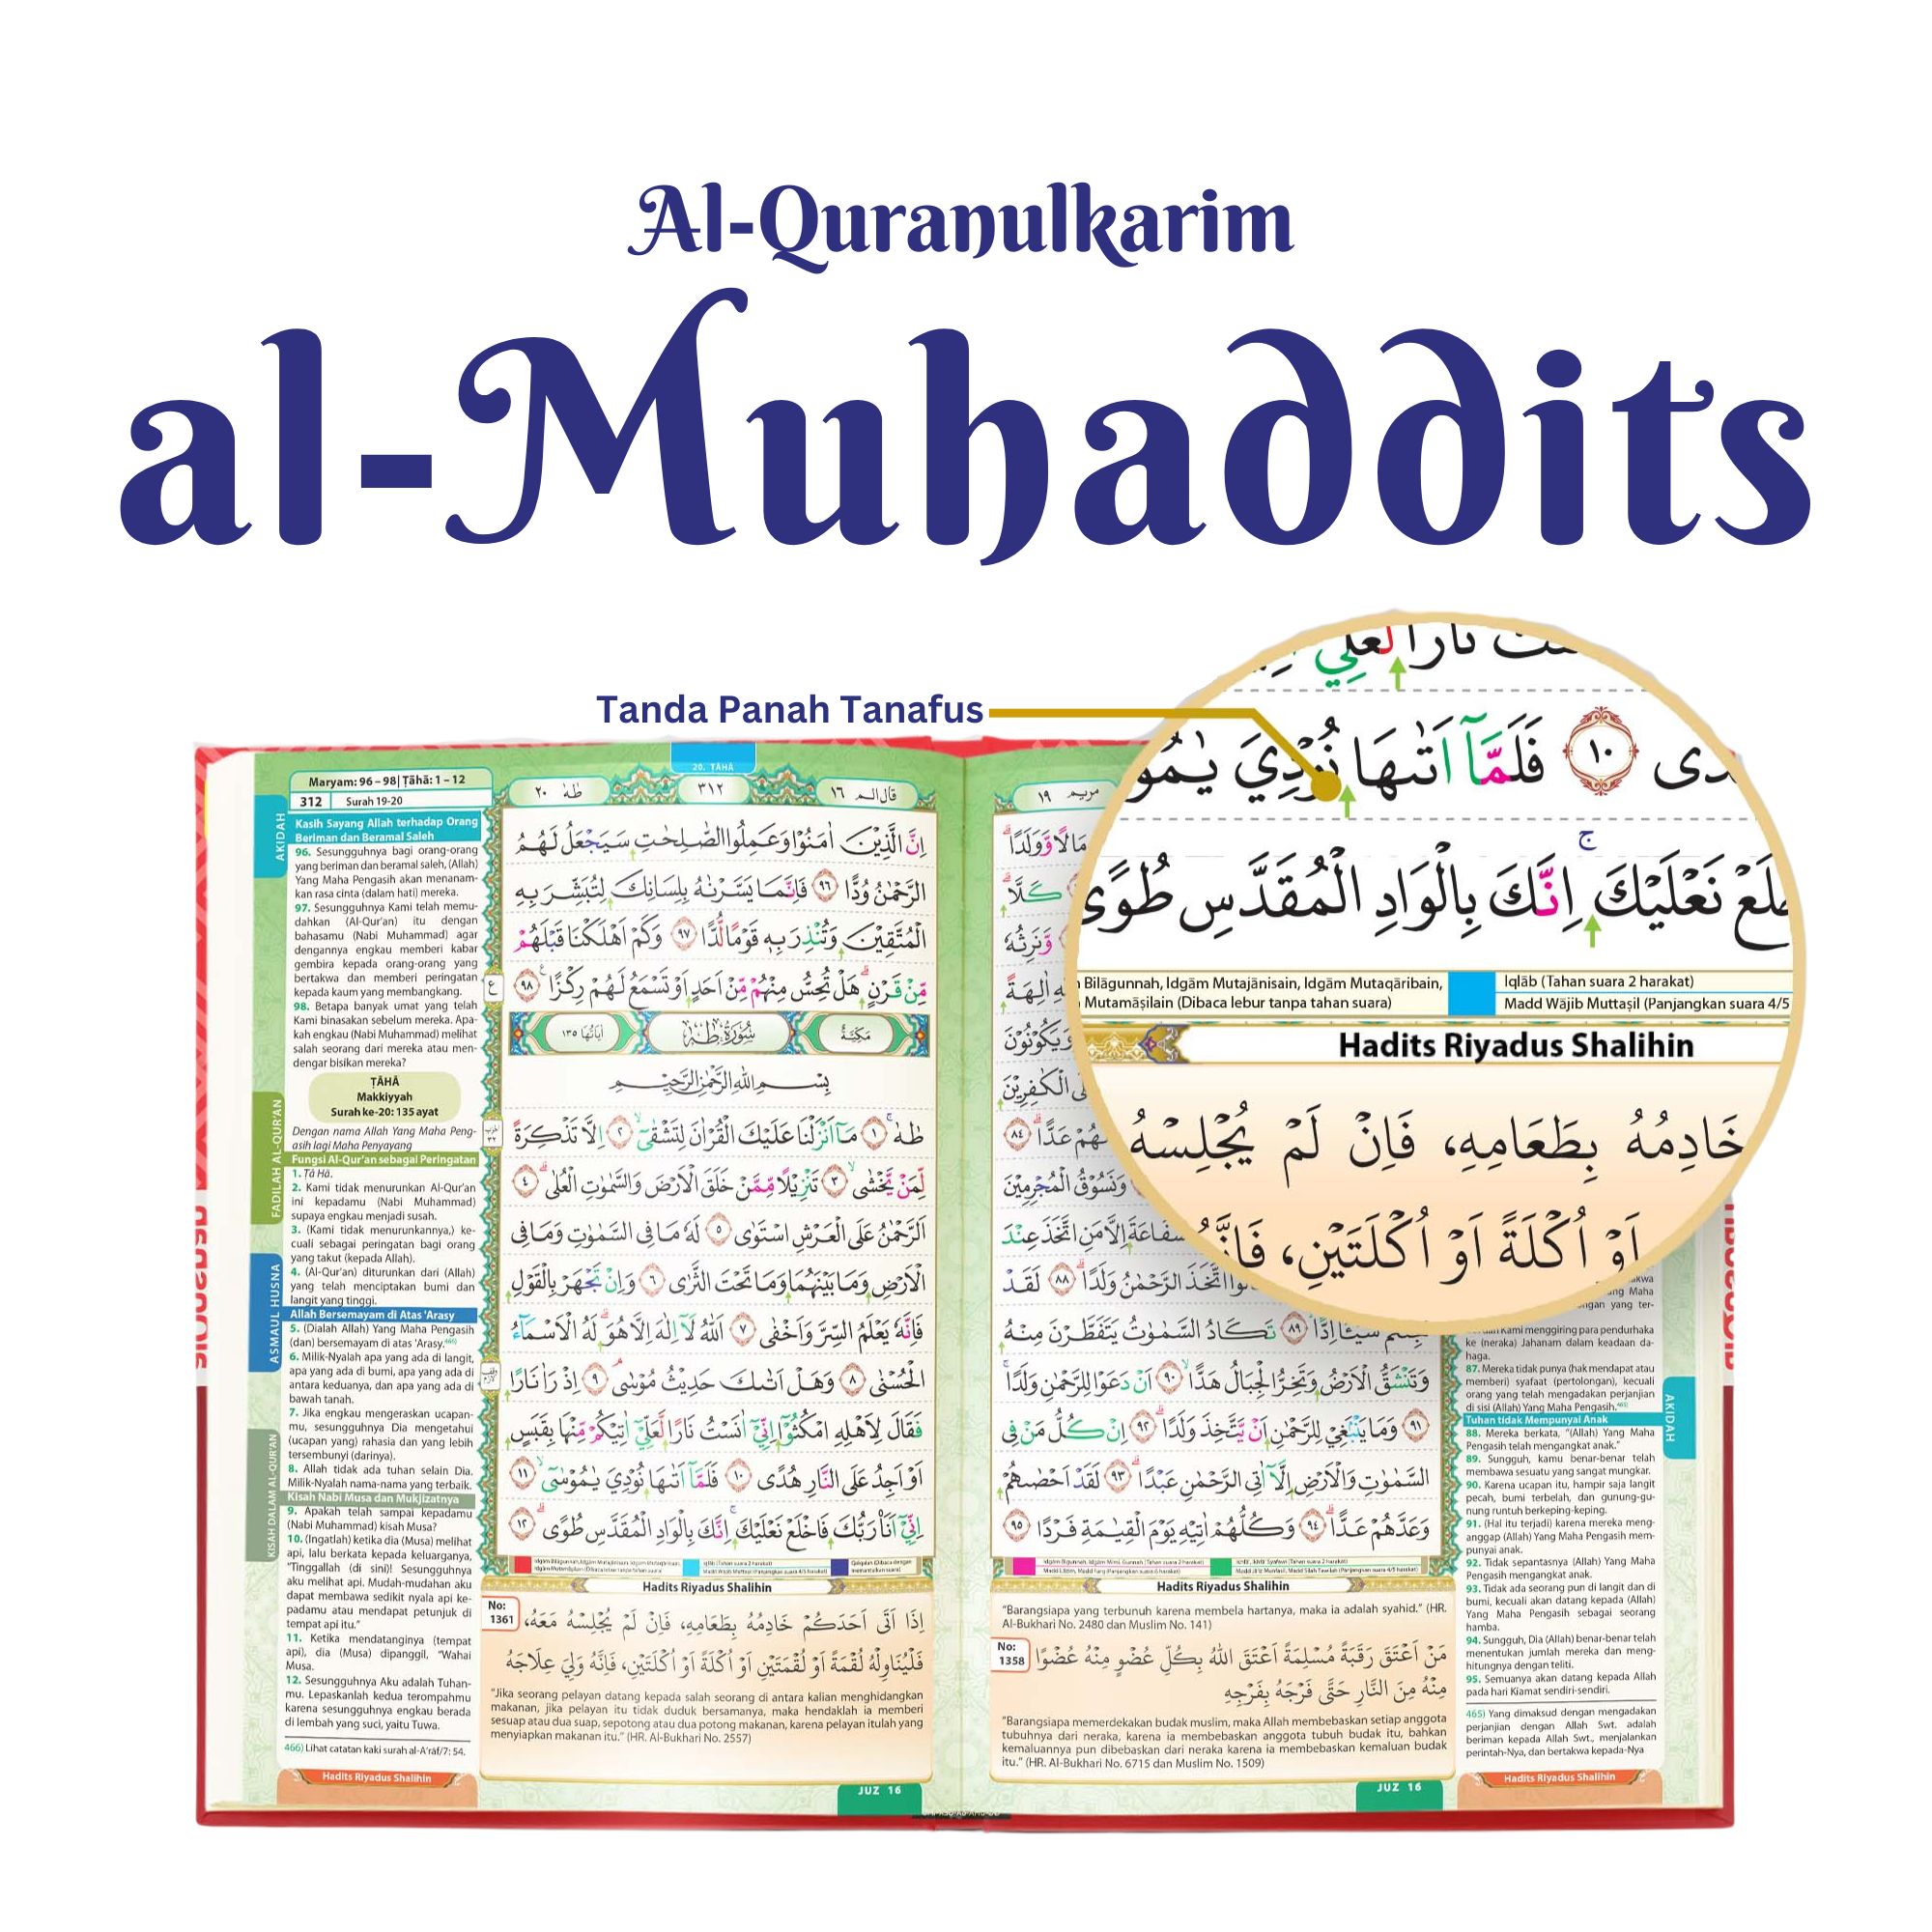 Al-Quranulkarim
al-Muhaddits
Tanda Panah Tanafus
20. ṬĀHĀ
Maryam: 96 – 98| Ṭāhā: 1 – 12
312 Surah 19-20
AKIDAH
Kasih Sayang Allah terhadap Orang
Beriman dan Beramal Saleh
96. Sesungguhnya bagi orang-orang
yang beriman dan beramal saleh, (Allah)
Yang Maha Pengasih akan menanam-
kan rasa cinta (dalam hati) mereka.
97. Sesungguhnya Kami telah memu-
dahkan (Al-Qur'an) itu dengan
bahasamu (Nabi Muhammad) agar
dengannya engkau memberi kabar
gembira kepada orang-orang yang
bertakwa dan memberi peringatan
kepada kaum yang membangkang.
98. Betapa banyak umat yang telah
Kami binasakan sebelum mereka. Apa-
kah engkau (Nabi Muhammad) melihat
salah seorang dari mereka atau men-
dengar bisikan mereka?
ṬĀHĀ
Makkiyyah
Surah ke-20: 135 ayat
Dengan nama Allah Yang Maha Peng-
asih lagi Maha Penyayang
FADILAH AL-QUR'AN
Fungsi Al-Qur'an sebagai Peringatan
1. Ṭā Hā.
2. Kami tidak menurunkan Al-Qur'an
ini kepadamu (Nabi Muhammad)
supaya engkau menjadi susah.
3. (Kami tidak menurunkannya,) ke-
cuali sebagai peringatan bagi orang
yang takut (kepada Allah).
4. (Al-Qur'an) diturunkan dari (Allah)
yang telah menciptakan bumi dan
langit yang tinggi.
ASMAUL HUSNA
Allah Bersemayam di Atas 'Arasy
5. (Dialah Allah) Yang Maha Pengasih
(dan) bersemayam di atas 'Arasy.
6. Milik-Nyalah apa yang ada di langit,
apa yang ada di bumi, apa yang ada di
antara keduanya, dan apa yang ada di
bawah tanah.
7. Jika engkau mengeraskan ucapan-
mu, sesungguhnya Dia mengetahui
(ucapan yang) rahasia dan yang lebih
tersembunyi (darinya).
8. Allah tidak ada tuhan selain Dia.
Milik-Nyalah nama-nama yang terbaik.
KISAH DALAM AL-QUR'AN
Kisah Nabi Musa dan Mukjizatnya
9. Apakah telah sampai kepadamu
(Nabi Muhammad) kisah Musa?
10. (Ingatlah) ketika dia (Musa) melihat
api, lalu berkata kepada keluarganya,
"Tinggallah (di sini)! Sesungguhnya
aku melihat api. Mudah-mudahan aku
dapat membawa sedikit nyala api ke-
padamu atau mendapat petunjuk di
tempat api itu."
11. Ketika mendatanginya (tempat
api), dia (Musa) dipanggil, "Wahai
Musa.
12. Sesungguhnya Aku adalah Tuhan-
mu. Lepaskanlah kedua terompahmu
karena sesungguhnya engkau berada
di lembah yang suci, yaitu Tuwa.
466) Lihat catatan kaki surah al-A'rāf/7: 54.
Hadits Riyadus Shalihin
قال الم ١٦ ٣١٢ طٰهٰ ٢٠
اِنَّ الَّذِيْنَ اٰمَنُوْا وَعَمِلُوا الصّٰلِحٰتِ سَيَجْعَلُ لَهُمُ
الرَّحْمٰنُ وُدًّا ٩٦ فَاِنَّمَا يَسَّرْنٰهُ بِلِسَانِكَ لِتُبَشِّرَ بِهِ
الْمُتَّقِيْنَ وَتُنْذِرَ بِهٖ قَوْمًا لُّدًّا ٩٧ وَكَمْ اَهْلَكْنَا قَبْلَهُمْ
مِّنْ قَرْنٍۗ هَلْ تُحِسُّ مِنْهُمْ مِّنْ اَحَدٍ اَوْ تَسْمَعُ لَهُمْ رِكْزًا ٩٨
مَكِّيَّةٌ سُوْرَةُ طٰهٰ اٰيَاتُهَا ١٣٥
بِسْمِ اللّٰهِ الرَّحْمٰنِ الرَّحِيْمِ
طٰهٰ ١ مَآ اَنْزَلْنَا عَلَيْكَ الْقُرْاٰنَ لِتَشْقٰٓى ٢ اِلَّا تَذْكِرَةً
لِّمَنْ يَّخْشٰى ٣ تَنْزِيْلًا مِّمَّنْ خَلَقَ الْاَرْضَ وَالسَّمٰوٰتِ الْعُلٰى ٤
اَلرَّحْمٰنُ عَلَى الْعَرْشِ اسْتَوٰى ٥ لَهٗ مَا فِى السَّمٰوٰتِ وَمَا فِى
الْاَرْضِ وَمَا بَيْنَهُمَا وَمَا تَحْتَ الثَّرٰى ٦ وَاِنْ تَجْهَرْ بِالْقَوْلِ
فَاِنَّهٗ يَعْلَمُ السِّرَّ وَاَخْفٰى ٧ اَللّٰهُ لَآ اِلٰهَ اِلَّا هُوَۗ لَهُ الْاَسْمَاۤءُ
الْحُسْنٰى ٨ وَهَلْ اَتٰىكَ حَدِيْثُ مُوْسٰى ٩ اِذْ رَاٰ نَارًا
فَقَالَ لِاَهْلِهِ امْكُثُوْٓا اِنِّيْٓ اٰنَسْتُ نَارًا لَّعَلِّيْٓ اٰتِيْكُمْ مِّنْهَا بِقَبَسٍ
اَوْ اَجِدُ عَلَى النَّارِ هُدًى ١٠ فَلَمَّآ اَتٰىهَا نُوْدِيَ يٰمُوْسٰٓى ١١
اِنِّيْٓ اَنَا۠ رَبُّكَ فَاخْلَعْ نَعْلَيْكَۚ اِنَّكَ بِالْوَادِ الْمُقَدَّسِ طُوًى ١٢
Hadits Riyadus Shalihin
No:
1361
اِذَا اَتَى اَحَدَكُمْ خَادِمُهُ بِطَعَامِهِ، فَاِنْ لَمْ يُجْلِسْهُ مَعَهُ،
فَلْيُنَاوِلْهُ لُقْمَةً اَوْ لُقْمَتَيْنِ اَوْ اُكْلَةً اَوْ اُكْلَتَيْنِ، فَاِنَّهُ وَلِيَ عِلَاجَهُ
"Jika seorang pelayan datang kepada salah seorang di antara kalian menghidangkan
makanan, jika pelayan itu tidak duduk bersamanya, maka hendaklah ia memberi
sesuap atau dua suap, sepotong atau dua potong makanan, karena pelayan itulah yang
menyiapkan makanan itu." (HR. Al-Bukhari No. 2557)
JUZ 16
مريم ١٩
مَالًا وَّوَلَدًا
كَلَّا
وَّنَرِثُهٗ
اٰلِهَةً
وَيَكُوْنُوْنَ
الْكٰفِرِيْنَ
لَهُمْ عَدًّا ٨٤
وَنَسُوْقُ الْمُجْرِمِيْنَ
الشَّفَاعَةَ اِلَّا مَنِ اتَّخَذَ عِنْدَ
اتَّخَذَ الرَّحْمٰنُ وَلَدًا ٨٨ لَقَدْ
جِئْتُمْ شَيْـًٔا اِدًّا ٨٩ تَكَادُ السَّمٰوٰتُ يَتَفَطَّرْنَ مِنْهُ
وَتَنْشَقُّ الْاَرْضُ وَتَخِرُّ الْجِبَالُ هَدًّا ٩٠ اَنْ دَعَوْا لِلرَّحْمٰنِ وَلَدًا
٩١ وَمَا يَنْۢبَغِيْ لِلرَّحْمٰنِ اَنْ يَّتَّخِذَ وَلَدًا ٩٢ اِنْ كُلُّ مَنْ فِى
السَّمٰوٰتِ وَالْاَرْضِ اِلَّآ اٰتِى الرَّحْمٰنِ عَبْدًا ٩٣ لَقَدْ اَحْصٰىهُمْ
وَعَدَّهُمْ عَدًّا ٩٤ وَكُلُّهُمْ اٰتِيْهِ يَوْمَ الْقِيٰمَةِ فَرْدًا ٩٥
Hadits Riyadus Shalihin
"Barangsiapa yang terbunuh karena membela hartanya, maka ia adalah syahid." (HR.
Al-Bukhari No. 2480 dan Muslim No. 141)
No:
1358
مَنْ اَعْتَقَ رَقَبَةً مُسْلِمَةً اَعْتَقَ اللهُ بِكُلِّ عُضْوٍ مِنْهُ عُضْوًا
مِنْهُ مِنَ النَّارِ حَتَّى فَرْجَهُ بِفَرْجِهِ
"Barangsiapa memerdekakan budak muslim, maka Allah membebaskan setiap anggota
tubuhnya dari neraka, karena ia membebaskan anggota tubuh budak itu, bahkan
kemaluannya pun dibebaskan dari neraka karena ia membebaskan kemaluan budak
itu." (HR. Al-Bukhari No. 6715 dan Muslim No. 1509)
JUZ 16
Kami menggiring para pendurhaka
ke (neraka) Jahanam dalam keadaan da-
haga.
87. Mereka tidak punya (hak mendapat atau
memberi) syafaat (pertolongan), kecuali
orang yang telah mengadakan perjanjian
di sisi (Allah) Yang Maha Pengasih.
AKIDAH
Tuhan tidak Mempunyai Anak
88. Mereka berkata, "(Allah) Yang Maha
Pengasih telah mengangkat anak."
89. Sungguh, kamu benar-benar telah
membawa sesuatu yang sangat mungkar.
90. Karena ucapan itu, hampir saja langit
pecah, bumi terbelah, dan gunung-gu-
nung runtuh berkeping-keping.
91. (Hal itu terjadi) karena mereka meng-
anggap (Allah) Yang Maha Pengasih mem-
punyai anak.
92. Tidak sepantasnya (Allah) Yang Maha
Pengasih mengangkat anak.
93. Tidak ada seorang pun di langit dan di
bumi, kecuali akan datang kepada (Allah)
Yang Maha Pengasih sebagai seorang
hamba.
94. Sungguh, Dia (Allah) benar-benar telah
menentukan jumlah mereka dan meng-
hitungnya dengan teliti.
95. Semuanya akan datang kepada Allah
pada hari Kiamat sendiri-sendiri.
465) Yang dimaksud dengan mengadakan
perjanjian dengan Allah Swt. adalah
beriman kepada Allah Swt., menjalankan
perintah-Nya, dan bertakwa kepada-Nya
Hadits Riyadus Shalihin
نَارًا لَّعَلِّيْ
١٠ فَلَمَّآ اَتٰىهَا نُوْدِيَ يٰمُو
نَعْلَيْكَۚ اِنَّكَ بِالْوَادِ الْمُقَدَّسِ طُوًى
Bilāgunnah, Idgām Mutajānisain, Idgām Mutaqāribain,
Mutamāṡilain (Dibaca lebur tanpa tahan suara)
Iqlāb (Tahan suara 2 harakat)
Madd Wājib Muttaṣil (Panjangkan suara 4/5
Hadits Riyadus Shalihin
خَادِمُهُ بِطَعَامِهِ، فَاِنْ لَمْ يُجْلِسْهُ
اَوْ اُكْلَةً اَوْ اُكْلَتَيْنِ، فَاِنَّهُ